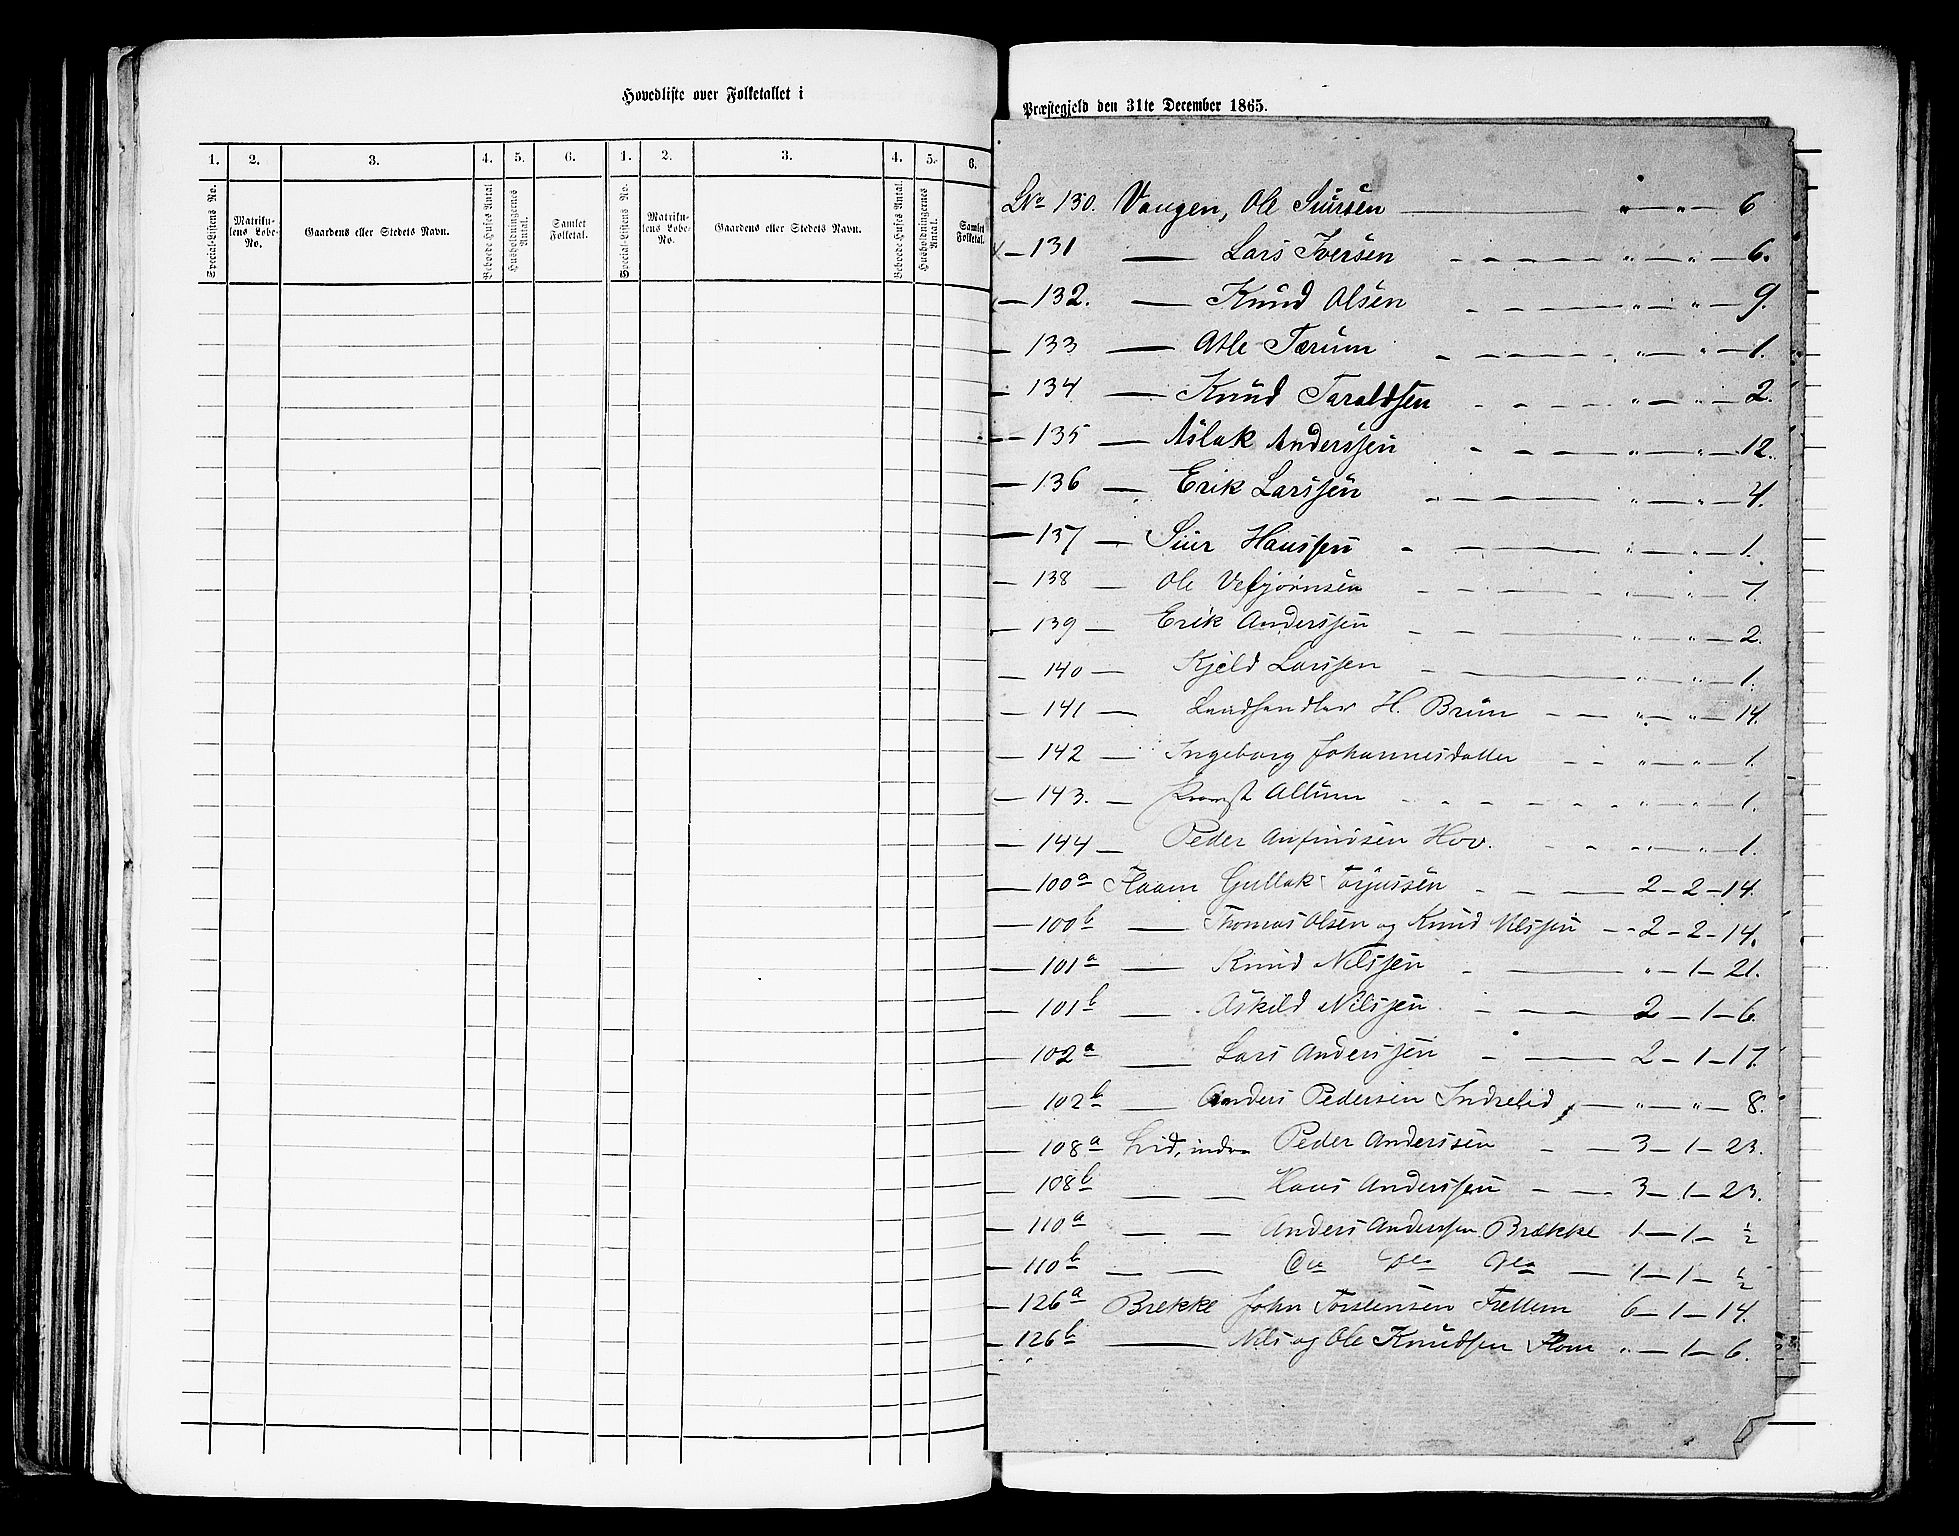 Hovedliste over Folketallet i
1. 2. 3. 4. 5. 6. 1. 2. 3. 4. 5. 6.
Special-Listens No. Matriku-lens Lobe-No. Gaardens eller Stedets Navn. Beboede Huses Antal Husholdningernes Antal. Samlet Folketal. Special-Listens No. Matriku-lens Lobe-No. Gaardens eller Stedets Navn. Beboede Huses Antal. Husholdningernes Antal. Samlet Folketal.
Præstegjeld den 31te December 1865.
LNo 130. Vangen, Ole Siursen — " — " — 6
— 131 — Lars Iversen — " — " — 6.
— 132. — Knud Olsen — " — " — 9.
— 133 — Atle Tærum — " — " — 1.
— 134 — Knud Taraldsen — " — " — 2.
— 135 — Aslak Anderssen — " — " — 12.
— 136 — Erik Larssen — " — " — 4.
— 137 — Siur Hanssen — " — " — 1.
— 138 — Ole Vebjørnsen — " — " — 7.
— 139 — Erik Anderssen — " — " — 2.
— 140 — Kjeld Larssen — " — " — 1.
— 141 — Landhandler H. Brun — " — " — 14.
— 142 — Ingeborg Johannesdatter — " — " — 1.
— 143. — Allum — " — " — 1.
— 144 — Peder Anfindsen Hov. — " — " — 1.
— 100a Flaam Gullak Torjussen — 2 — 2 — 14.
— 100b — Thomas Olsen og Knud Nilssen — 2 — 2 — 14.
— 101a — Knud Nilssen — " — 1 — 21.
— 101b — Askild Nilssen — 2 — 1 — 6.
— 102a — Lars Anderssen — 2 — 1 — 17.
— 102b — Anders Pedersen Indrelid — " — " — 8.
— 108a Lid, indre Peder Anderssen — 3 — 1 — 23.
— 108b — — Hans Anderssen — 3 — 1 — 23.
— 110a — — Anders Anderssen Brække 1 — 1 — ½
— 110b — — Do Do Do — 1 — 1 — ½
— 126a Brekke John Torstensen Frettem 6 — 1 — 14.
— 126b — Nils og Ole Knudsen Flom " — 1 — 6.